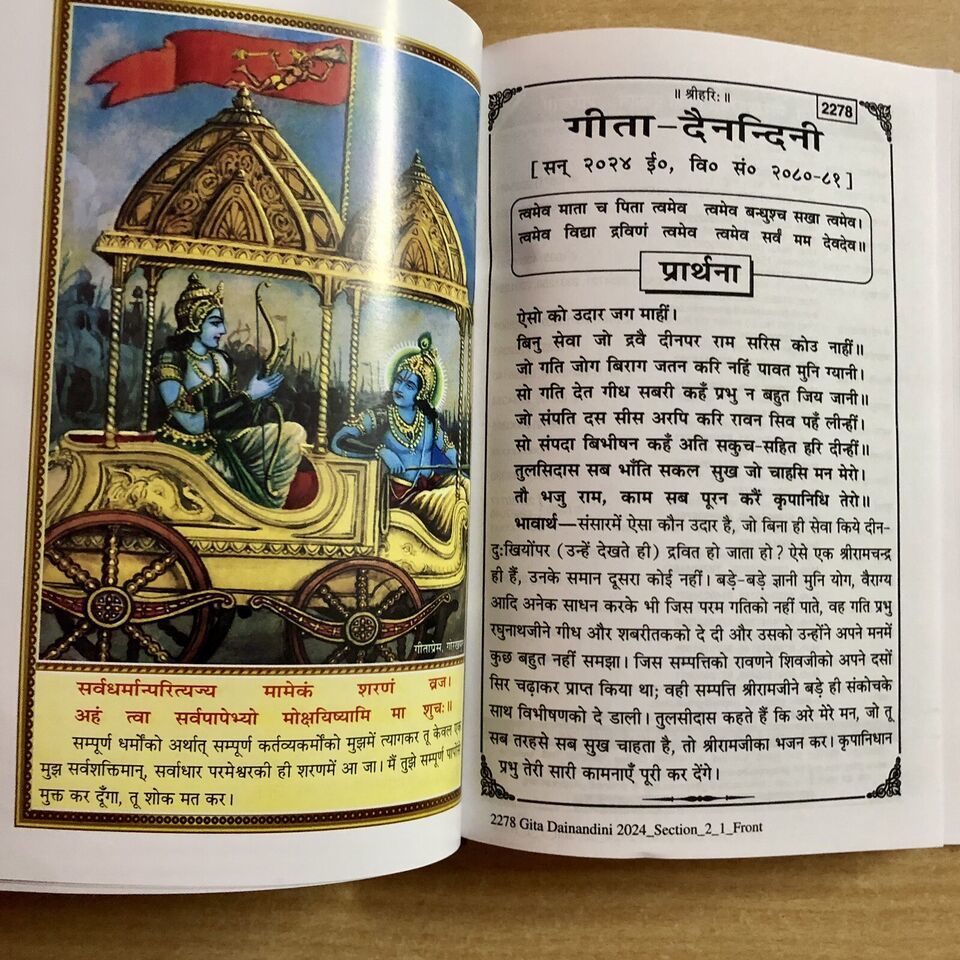 गीताप्रेस, गोरखपुर
सर्वधर्मान्परित्यज्य मामेकं शरणं व्रज।
अहं त्वा सर्वपापेभ्यो मोक्षयिष्यामि मा शुचः॥
सम्पूर्ण धर्मोंको अर्थात् सम्पूर्ण कर्तव्यकर्मोंको मुझमें त्यागकर तू केवल एक
मुझ सर्वशक्तिमान्, सर्वाधार परमेश्वरकी ही शरणमें आ जा। मैं तुझे सम्पूर्ण पापोंसे
मुक्त कर दूँगा, तू शोक मत कर।
॥ श्रीहरिः॥
2278
गीता-दैनन्दिनी
[ सन् २०२४ ई०, वि० सं० २०८०-८१ ]
त्वमेव माता च पिता त्वमेव त्वमेव बन्धुश्च सखा त्वमेव।
त्वमेव विद्या द्रविणं त्वमेव त्वमेव सर्वं मम देवदेव॥
प्रार्थना
ऐसो को उदार जग माहीं।
बिनु सेवा जो द्रवै दीनपर राम सरिस कोउ नाहीं॥
जो गति जोग बिराग जतन करि नहिं पावत मुनि ग्यानी।
सो गति देत गीध सबरी कहँ प्रभु न बहुत जिय जानी॥
जो संपति दस सीस अरपि करि रावन सिव पहँ लीन्हीं।
सो संपदा बिभीषन कहँ अति सकुच-सहित हरि दीन्हीं॥
तुलसिदास सब भाँति सकल सुख जो चाहसि मन मेरो।
तौ भजु राम, काम सब पूरन करैं कृपानिधि तेरो॥
भावार्थ—संसारमें ऐसा कौन उदार है, जो बिना ही सेवा किये दीन-
दुःखियोंपर (उन्हें देखते ही) द्रवित हो जाता हो? ऐसे एक श्रीरामचन्द्र
ही हैं, उनके समान दूसरा कोई नहीं। बड़े-बड़े ज्ञानी मुनि योग, वैराग्य
आदि अनेक साधन करके भी जिस परम गतिको नहीं पाते, वह गति प्रभु
रघुनाथजीने गीध और शबरीतकको दे दी और उसको उन्होंने अपने मनमें
कुछ बहुत नहीं समझा। जिस सम्पत्तिको रावणने शिवजीको अपने दसों
सिर चढ़ाकर प्राप्त किया था; वही सम्पत्ति श्रीरामजीने बड़े ही संकोचके
साथ विभीषणको दे डाली। तुलसीदास कहते हैं कि अरे मेरे मन, जो तू
सब तरहसे सब सुख चाहता है, तो श्रीरामजीका भजन कर। कृपानिधान
प्रभु तेरी सारी कामनाएँ पूरी कर देंगे।
2278 Gita Dainandini 2024_Section_2_1_Front